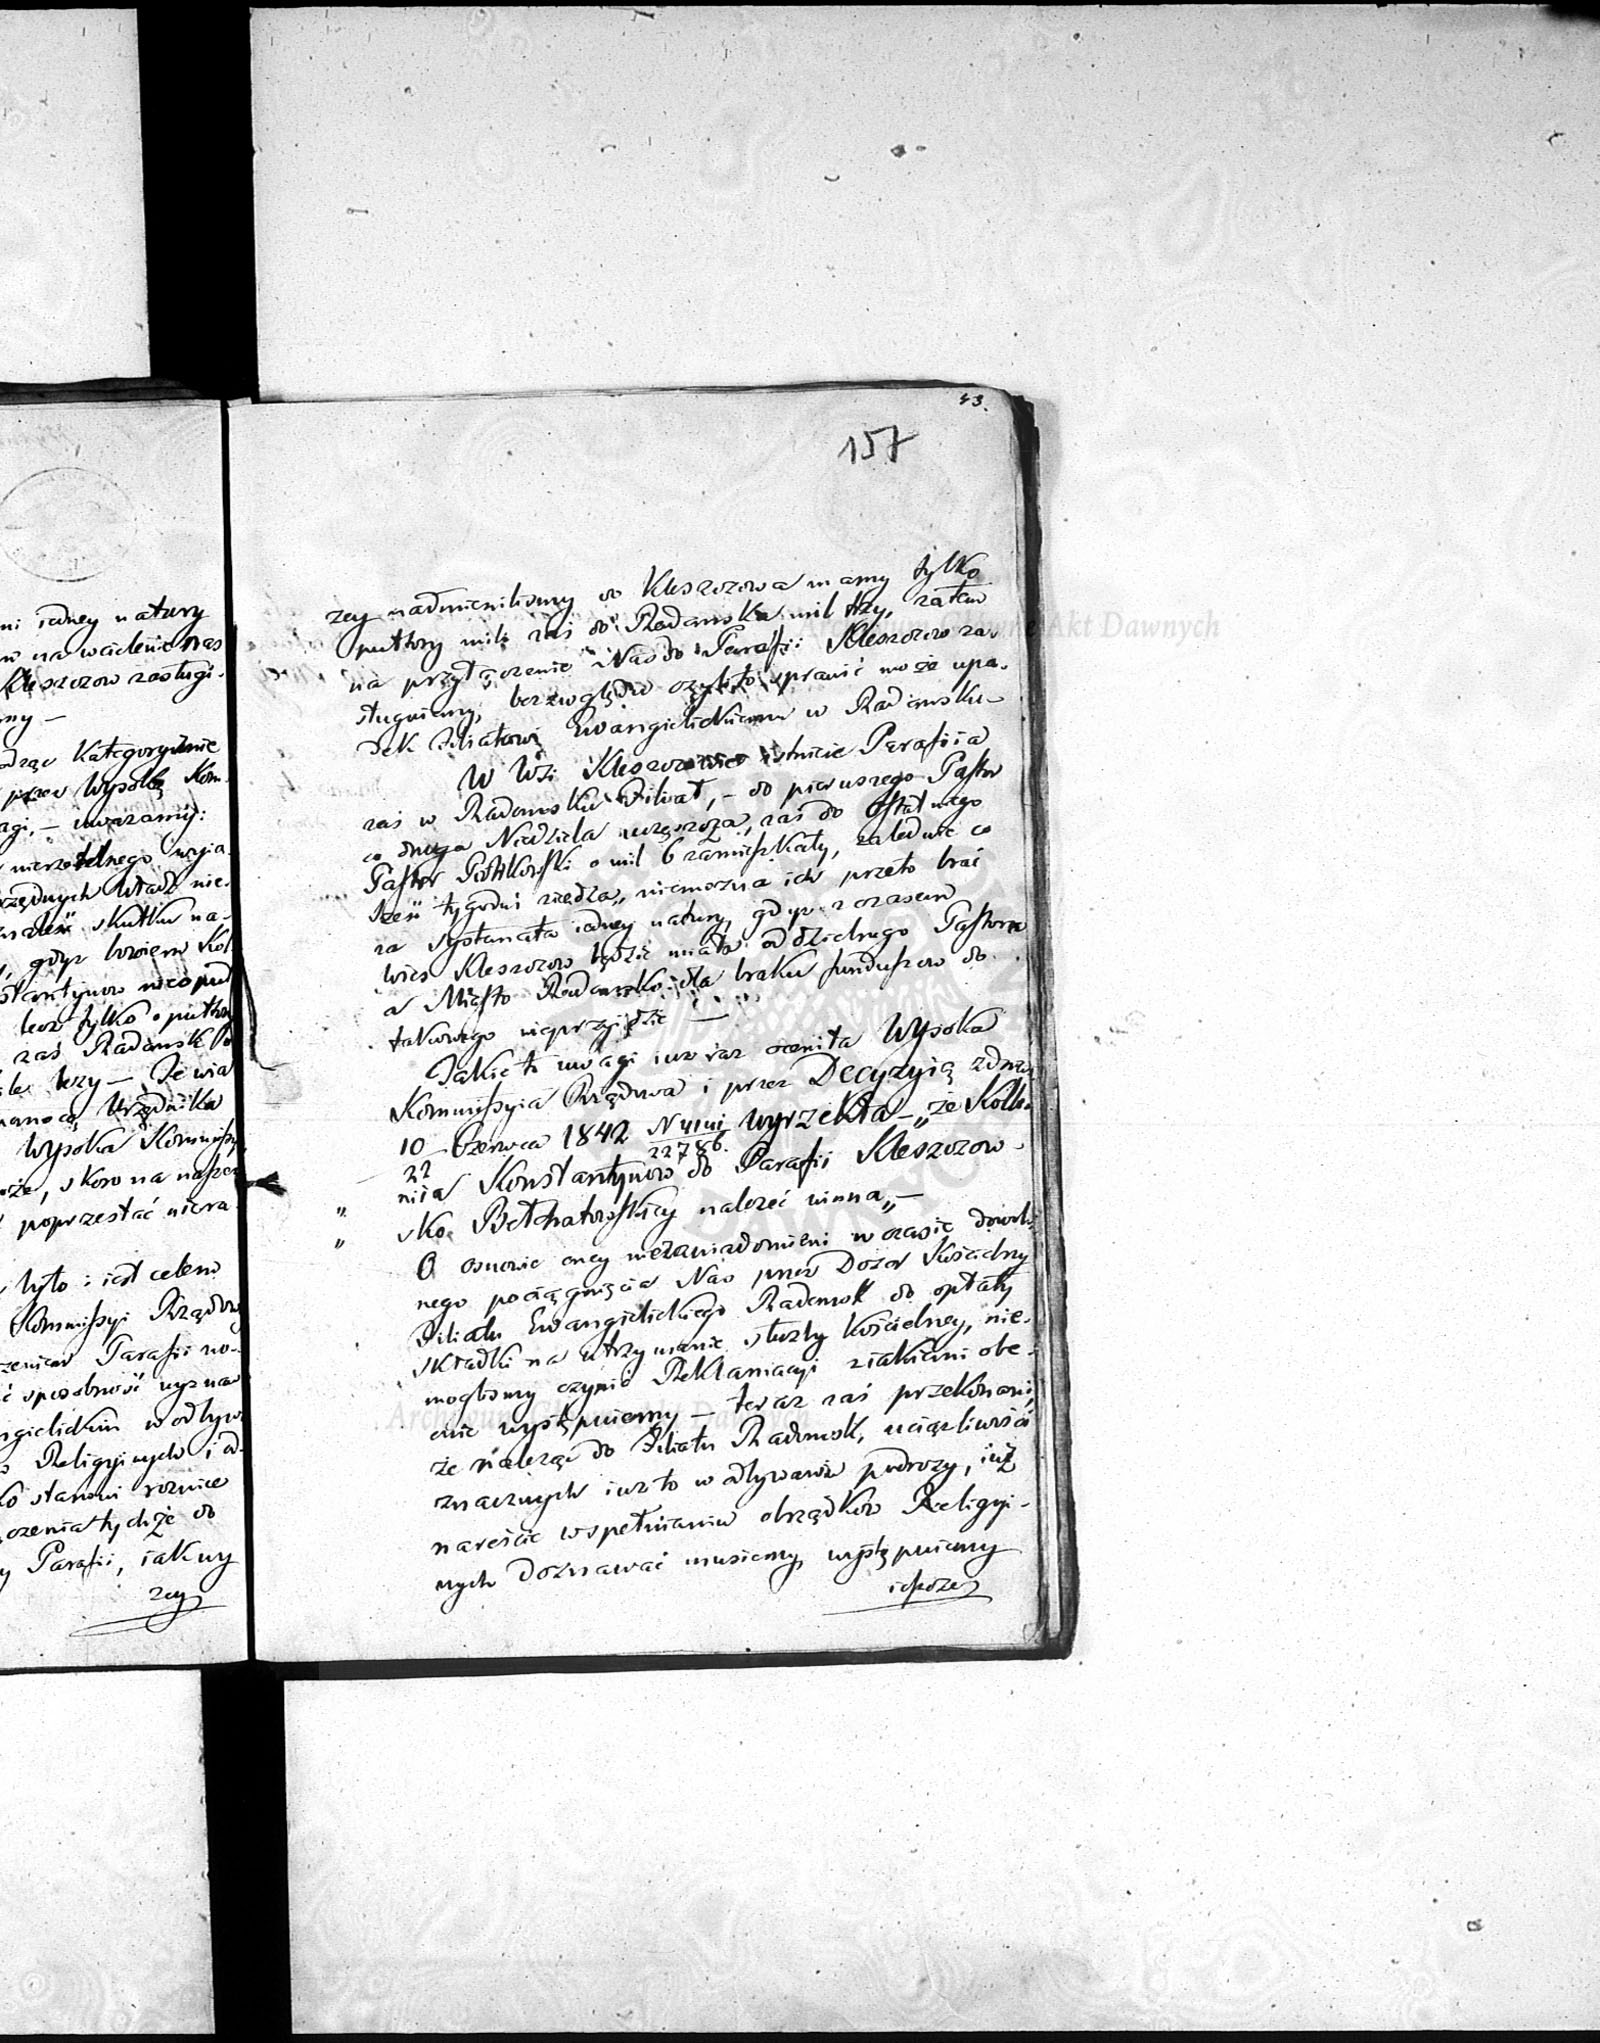 ni iedney natury
na wcielenie nas
Kleszczow zasługi-
my —
Kategorycznie
przez Wysoką Kom-
uwagi, — uważamy:
nierzetelnego wyia-
Władz nie-
skutku na-
gdyż bowiem Kol
stantynow nie o puł
lecz tylko o pułtory
zaś Radomsk
mile trzy — Że wia
Urzędnika
Wysoka Kommissy
może, skoro na naszey
poprzestać niera
było i iest celem
Kommissyi Rządow
czeniem Parafii no-
sposobność wyznaw
ngielickim w odbyw
Religijnych i od-
stanowi roznice
czenia tychże do
Parafii, iak wy
zey
43.
157
zey nadmienilismy do Kleszczowa mamy tylko
pułtory mili zaś do Radomska mil trzy, zatem
na przyłączenie Nas do Parafii Kleszczow za-
sługuiemy, bez względu czyli to sprawić może upa-
dek Filiałowi Ewangielickiemu w Radomsku —
W Wsi Kleszczowie istnieie Parafiia
zaś w Radomsku Filiał, — do pierwszego Pastor
co druga Niedziela uczęszcza, zaś do ostatniego
Pastor o mil 6 zamieszkały, zaledwie co
sześć tygodni ziedza, niemożna ich przeto brać
za iedney natury, gdyż z czasem
wies Kleszczow będzie miała oddzielnego Pastora
a Miasto Radomsko dla braku funduszow do
takowego nieprzyidzie —
Takie to uwagi iuż raz oceniła Wysoka
Kommissyia Rządowa i przez Decyzyią z dnia
10/22 Czerwca 1842 22786. wyrzekła — „że Kollo-
„ nia Konstantynow do Parafii Kleszczow-
„ sko Bełchatowskiey należeć winna„ —
O osnowie oney niezawiadomieni w czasie dowol-
nego pociągnięcia Nas przez Dozor Kościelny
Filiału Ewangielickiego Radomsk do opłaty
składki na utrzymanie służby kościelney, nie-
moglismy czynić Reklamacyi z iakiemi obe-
cnie występuiemy — teraz zaś przekonani,
że należąc do Filiału Radomsk, uciążliwości
znacznych iuż to w odbywaniu podrozy, iuż
nareście w spełnianiu obrządkow Religyi-
nych doznawać musiemy, występuiemy